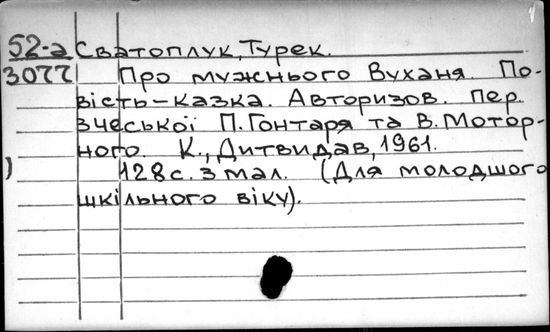 52-а Сватоплук, Турек.
3077 Про мужнього Вуханя. По-
вість-казка. Авторизов. пер.
з чеської П. Гонтаря та В. Мотор-
ного. К., Дитвидав, 1961.
128 с. з мал. (Для молодшого
шкільного віку).